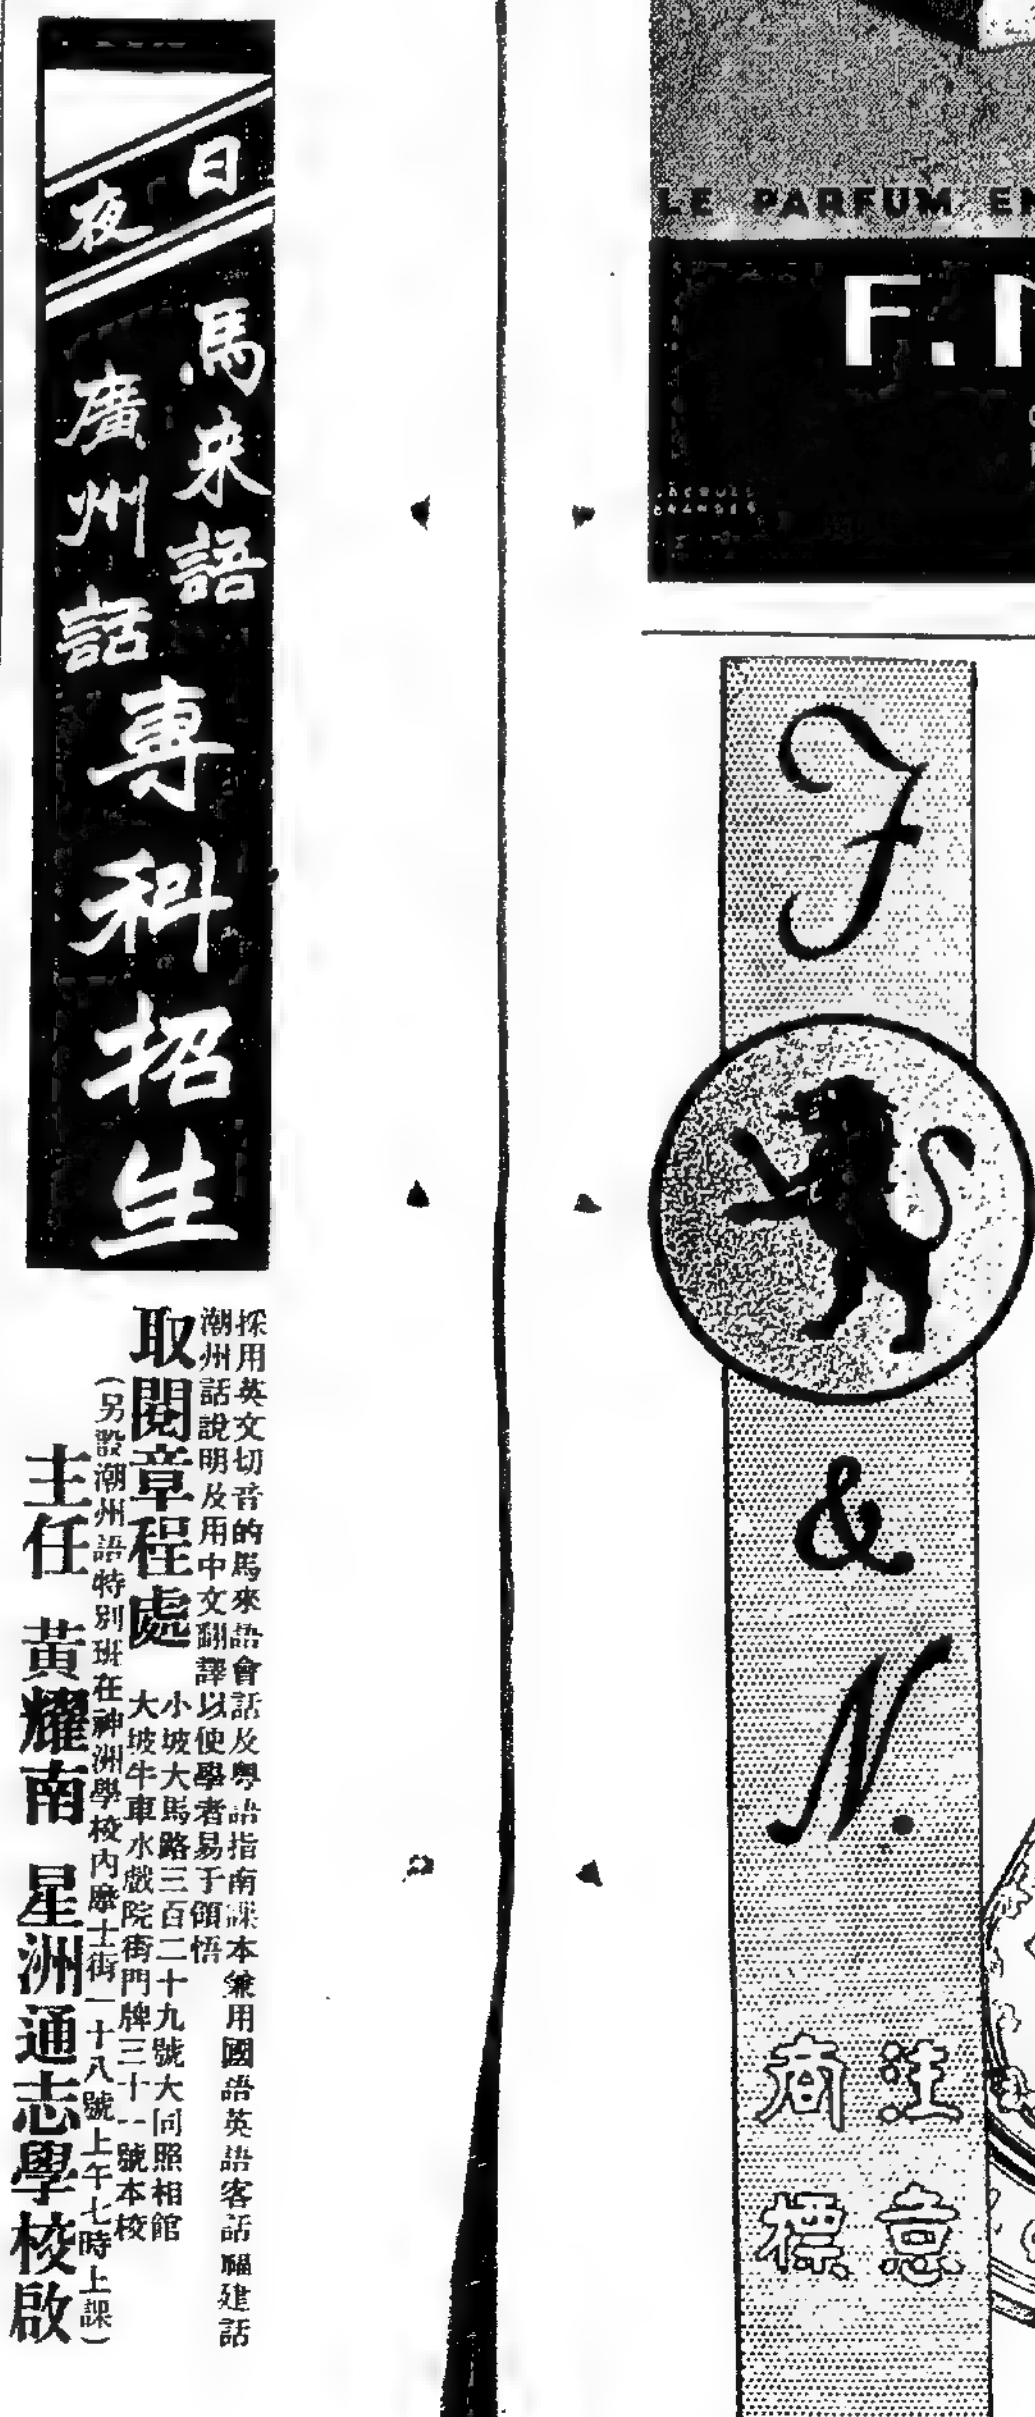 日夜
馬來語
廣州話
專科招生
採用英文切音的馬來語會話及粵語指南課本兼用國語英語客話福建話
潮州話說明及用中文翻譯以使學者易于領悟
取閱章程處
小坡大馬路三百二十九號大同照相館
大坡牛車水戲院街門牌三十一號本校
(另設潮州語特別班在神洲學校內摩士街一十八號上午七時上課)
主任 黃耀南 星洲通志學校啟
LE PARFUM EN
F. N
F
&
N.
注意
商標